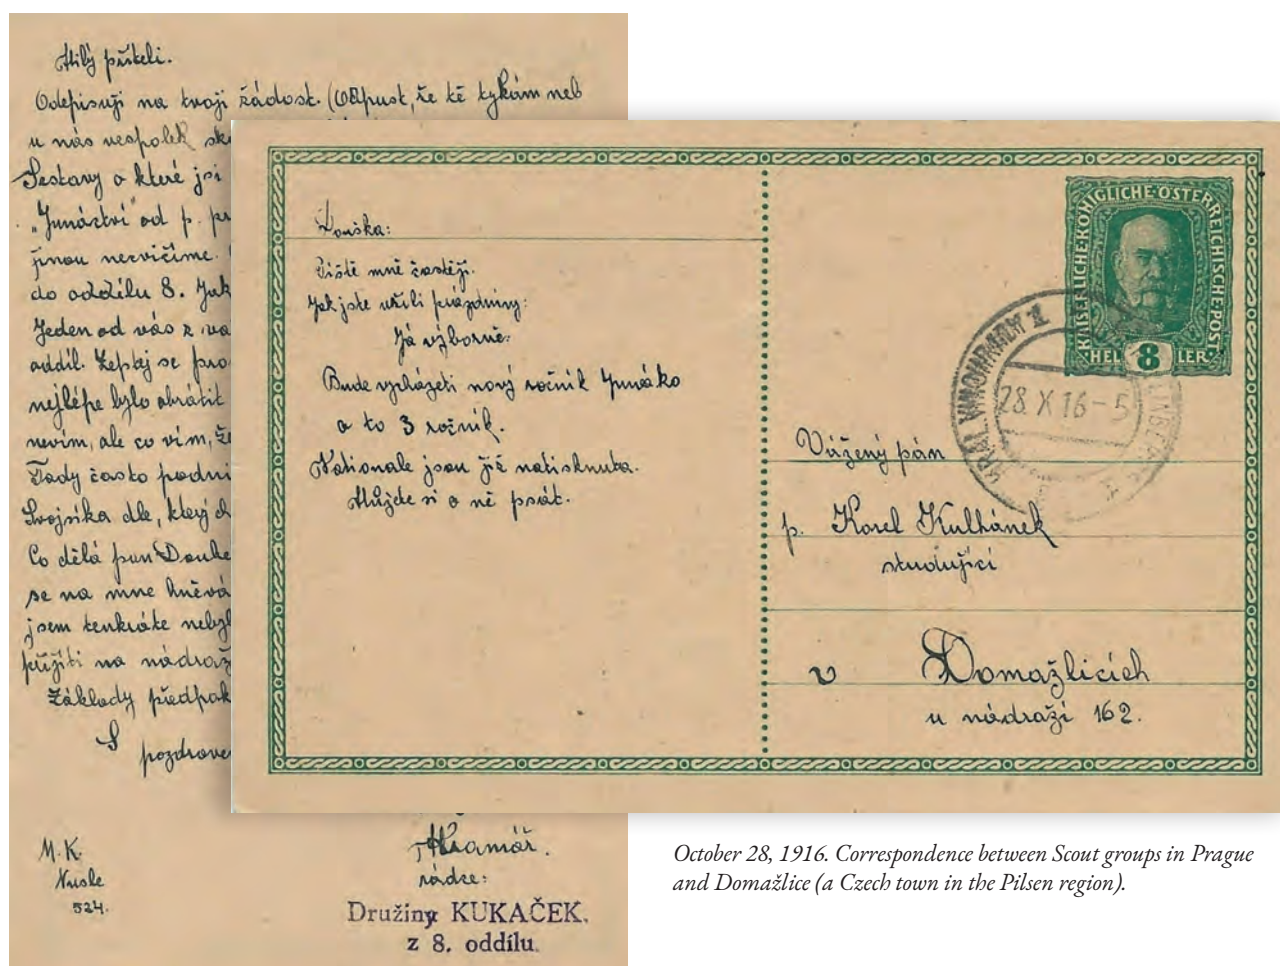 Milý příteli.
Odepisuji na tvoji žádost. (Odpust, že tě tykám neb
u nás vespolek
Sestavy o které jsi
„Junáctví" od p.
jinou necvičíme.
do oddílu 8. Jak
Jeden od vás z
oddíl. Zeptaj se
nejlépe bylo obrátit
nevím, ale co vím,
Tady často
Svojsíka dle, který
Co dělá pan
se na mne hněvá
jsem tenkráte
přijíti na
Základy
S
M. K.
Nusle
524.
rádce:
Družiny KUKAČEK,
z 8. oddílu.
Douška:
Pište mně častěji.
Jak jste užili prázdniny:
Já výborně.
Bude vycházeti nový ročník Junáko
a to 3 ročník.
Nationale jsou již natisknuta.
Můžete si o ně psát.
KAISERLICHEKÖNIGLICHE·ÖSTERREICHISCHE·POST
HELLER
8
28.X 16-5
Vážený pán
p. Karel Kulhánek
studující
v Domažlicích
u nádraží 162.
October 28, 1916. Correspondence between Scout groups in Prague
and Domažlice (a Czech town in the Pilsen region).